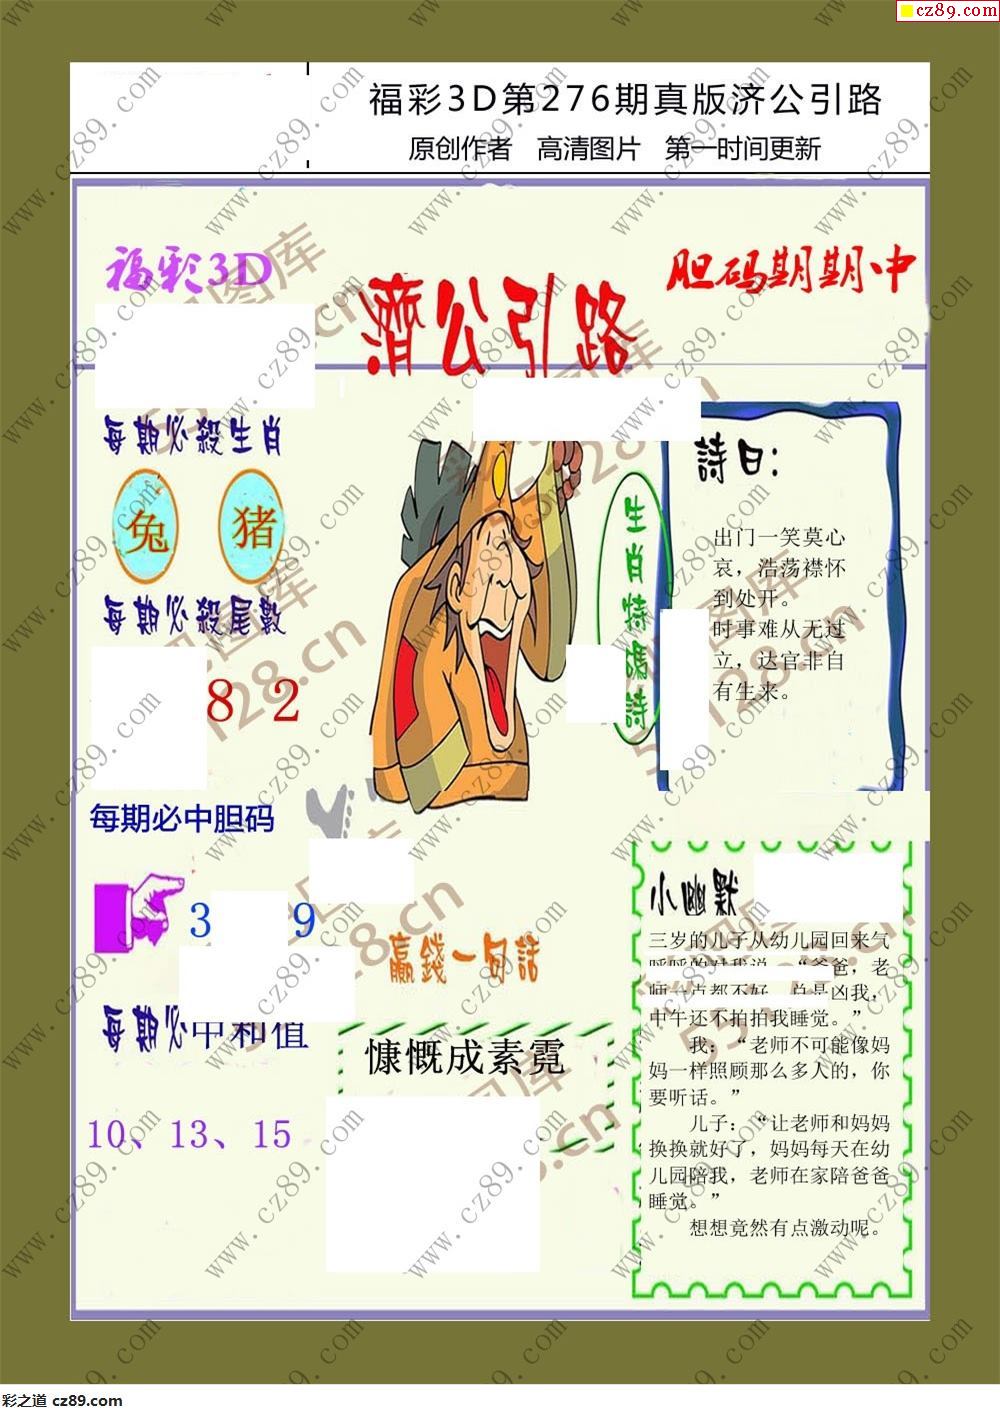 cz89.com
福彩3D第276期真版济公引路
原创作者 高清图片 第一时间更新
福彩3D
濟公引路
胆码期期中
每期必殺生肖
兔 猪
每期必殺尾數
8 2
每期必中胆码
3 9
每期必中和值
10、13、15
生肖特碼詩
詩曰：
出门一笑莫心
哀，浩荡襟怀
到处开。
时事难从无过
立，达官非自
有生来。
赢錢一句話
慷慨成素霓
小幽默
三岁的儿子从幼儿园回来气
呼呼的对我说：“爸爸，老
师一点都不好，总是凶我，
中午还不拍拍我睡觉。”
我：“老师不可能像妈
妈一样照顾那么多人的，你
要听话。”
儿子：“让老师和妈妈
换换就好了，妈妈每天在幼
儿园陪我，老师在家陪爸爸
睡觉。”
想想竟然有点激动呢。
彩之道 cz89.com
www.cz89.com
55128.cn